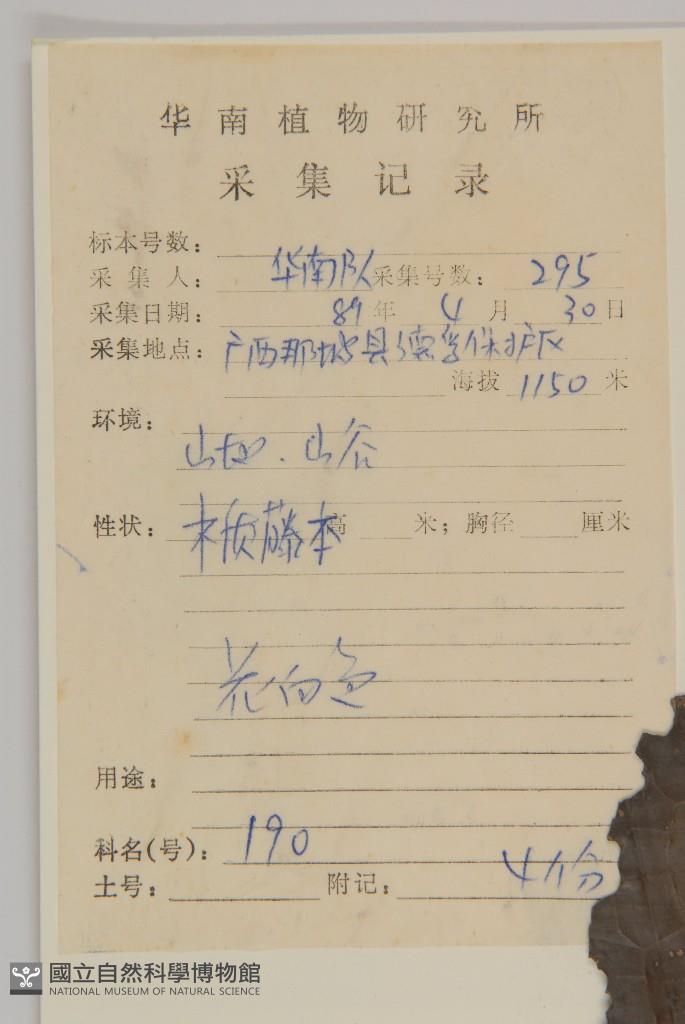 华南植物研究所
采集记录
标本号数:
采集人: 华南队 采集号数: 295
采集日期: 89年 4月 30日
采集地点: 广西那坡县德孚保护区
海拔 1150 米
环境:
山地.山谷
性状: 木质藤本 高 米; 胸径 厘米
花白色
用途:
科名(号): 190
土号: 附记: 4份
國立自然科學博物館
NATIONAL MUSEUM OF NATURAL SCIENCE